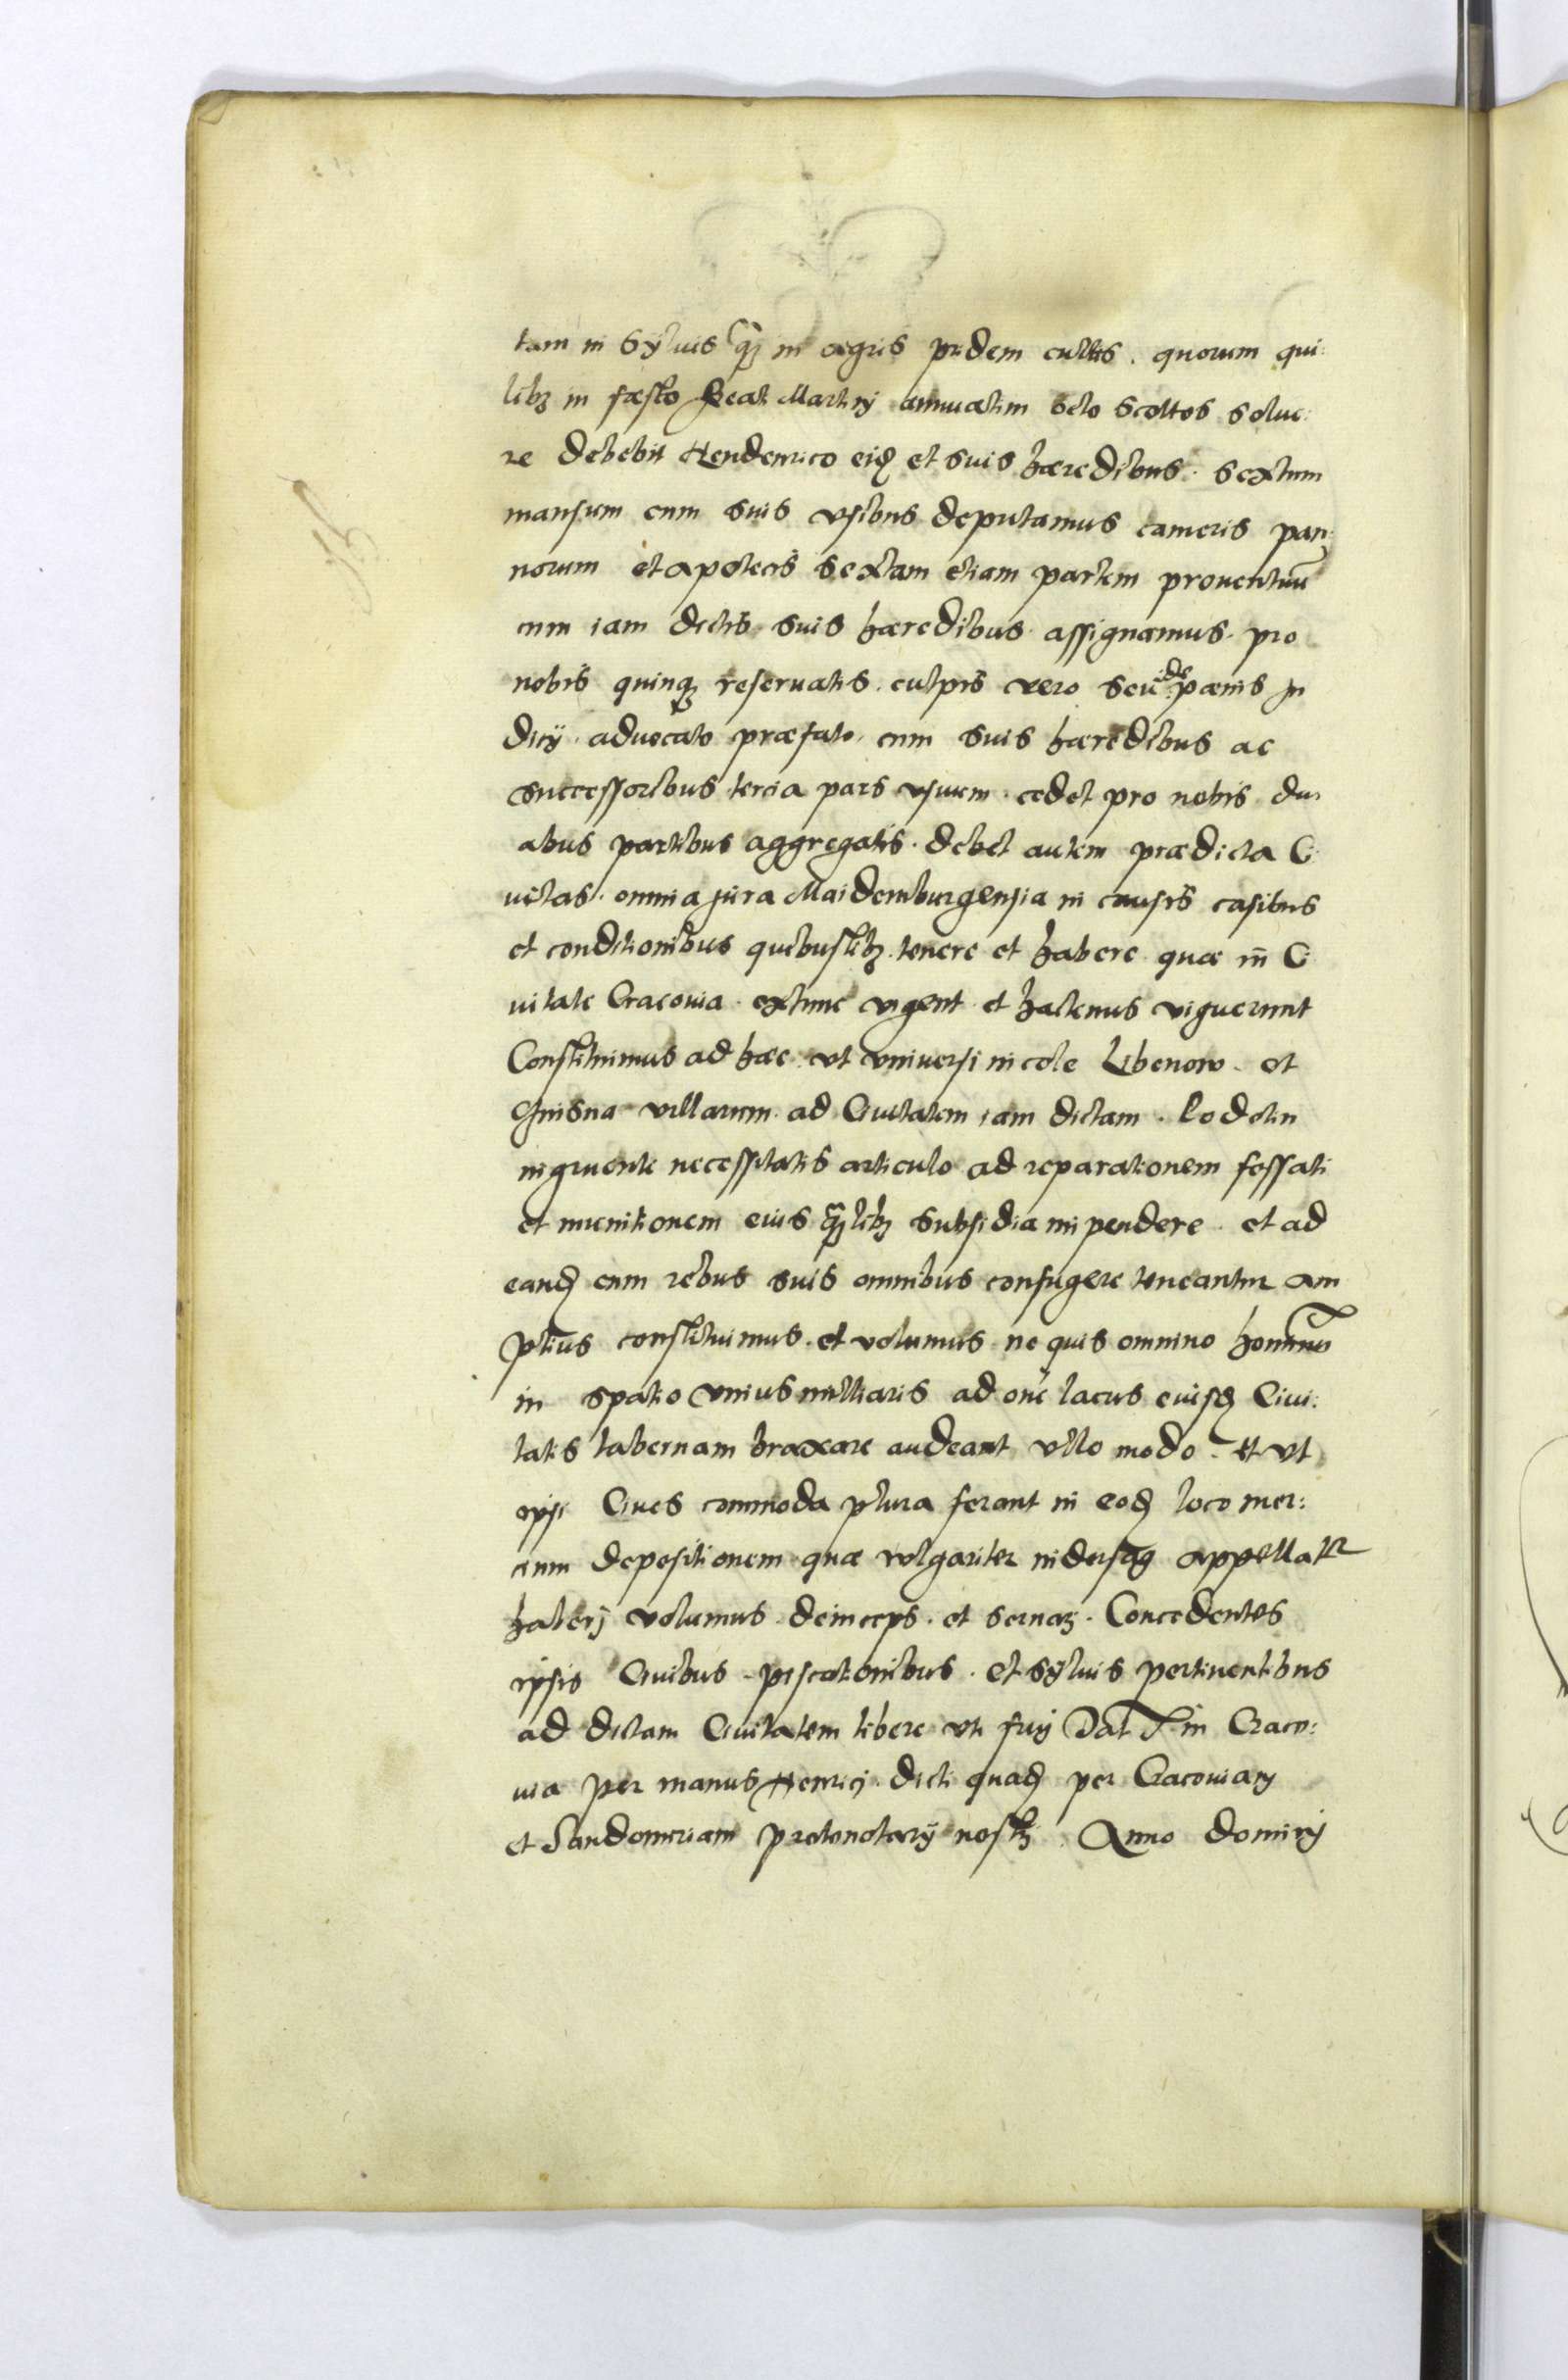 tam in Sÿluis q̃ꝫ in agris pridem cultis . quorum qui:
libꝫ in fæsto Beati Martinj annuatim octo scottos solue:
re debebit Hendenrico eid et suis hæredibus . sextum
mansum cum suis vsibus deputamus cameris pan:
norum et apotecis sextam etiam partem prouentuũ
cum iam dictis suis hæredibus assignamus . pro
nobis quinqꝫ reseruatis . culpis vero seu de pœnis Ju
dicÿ . aduocato præfato . cum suis hæredibus ac
successoribus tercia pars vsuum . cedet pro nobis du
abus partibus aggregatis . debet autem prædicta Ci
uitas . omnia jura Maidemburgensia in causis casibus
et conditionibus quibuslibꝫ . tenere et habere quæ in Ci
uitate Cracouia . extunc vigent et hactenus viguerunt
Constituimus ad hæc . vt vniuersi incole Libenow . et
Gnisna villarum . ad Ciuitatem iam dictam . Lodolin
ingruente necessitatis articulo ad reparationem fossati
et munitionem eius q̃ꝫlibꝫ subsidia inpendere . et ad
eand cum rebus suis omnibus confugere teneantur Am
plius constituimus . et volumus ne quis omnino hominũ
in spatio vnius milliaris ad om̃e lacus eiusd Ciui:
tatis tabernam braxare audeant vllo modo . Et vt
ipsi Ciues commoda plura ferant in eod loco mer:
cium depositionem quæ volgariter niderlag appellatr
haberj volumus . deinceps . et seruarj . Concedentes
ipsis Ciuibus . piscationibus . et Sÿluis pertinentibus
ad dictam Ciuitatem libere vti fruj Dat in Craco:
uia per manus Henricj . dicti quad per Cracouiam
et Sandomiriam protonotarÿ nostrj . Anno dominj